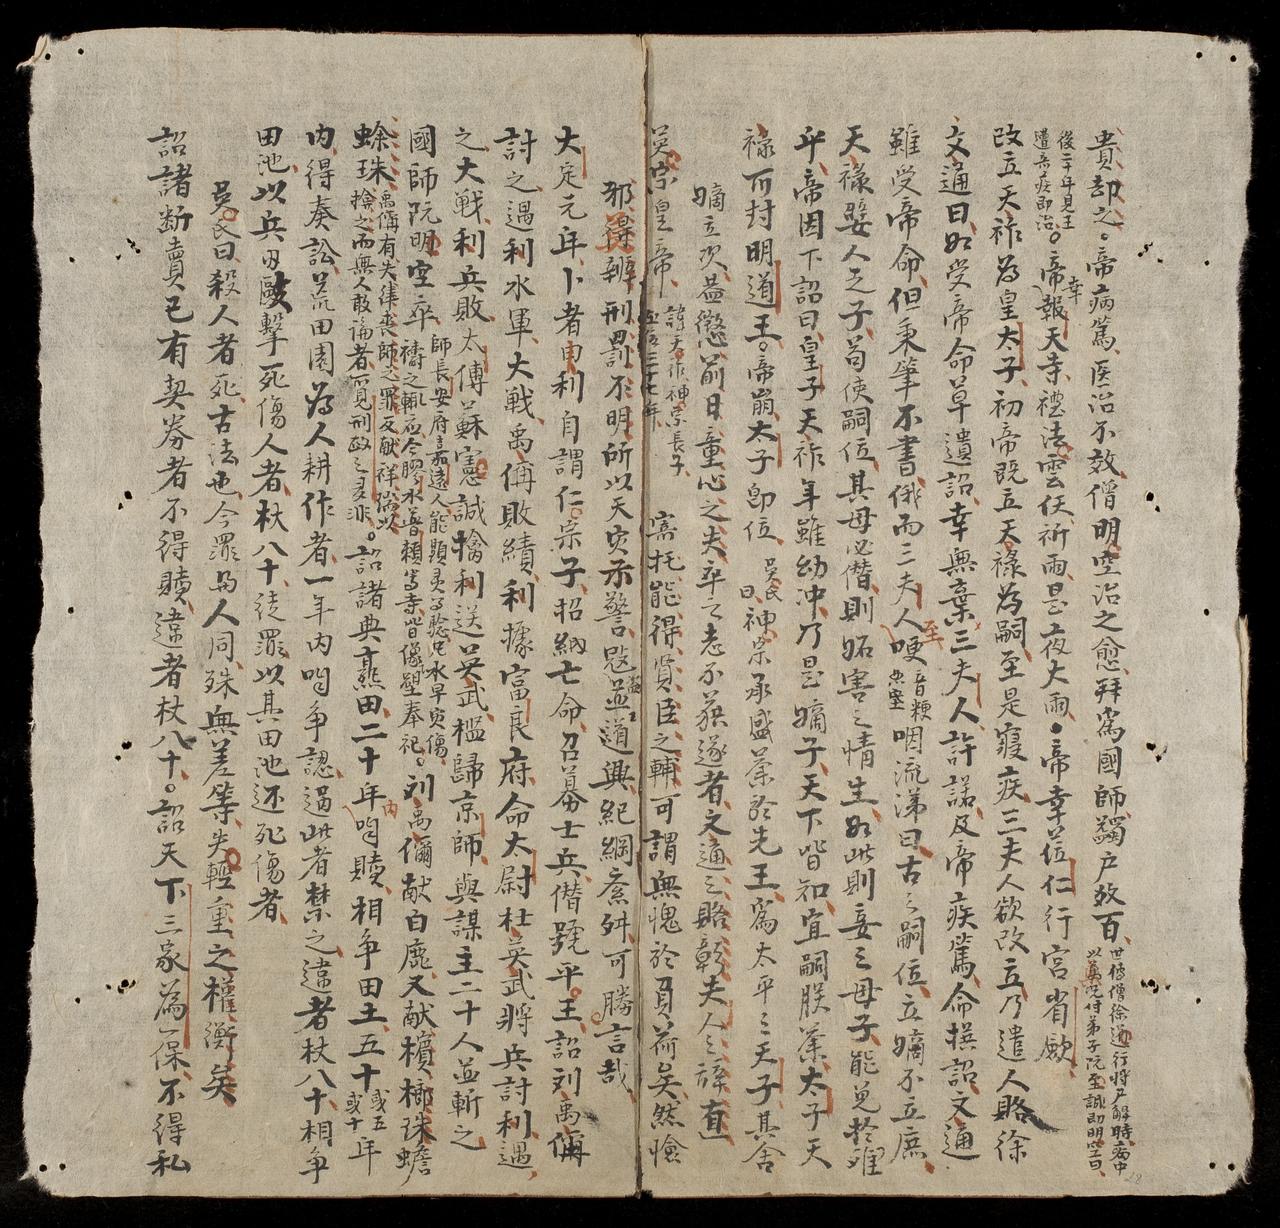 貴却之。帝病篤医治不效僧明空治之愈拜為國師蠲户数百世傳僧徐道行將尸解時病中以藥咒付弟子阮至誠即明空曰
後二十年見王遭奇疾即治。帝幸報天寺禮法雲仸祈雨是夜大雨。帝幸䓁仁行宮省歛
改立天祚為皇太子初帝既立天禄為嗣至是寢疾三夫人欲改立乃遣人賂徐
文通曰如受帝命草遺詔幸無棄三夫人許諾及帝疾篤命撰詔文通
雖受帝命但秉筆不書俄而三夫人至哽音梗悲塞咽流涕曰古之嗣位立嫡不立庶
天禄嬖人之子苟使嗣位其母必僭則妬害之情生如此則妾之母子能免於难
乎帝因下詔曰皇子天祚年雖幼冲乃是嫡子天下皆知宜嗣朕業太子天
禄可封明道王。帝崩太子即位吳氏曰神宗承盛業於先王為太平之天子其舍
嫡立次益懲前日童心之失卒之志不獲遂者文通之賂彰夫人之譁直
英宗皇帝諱天祚神宗長子在位三十七年寄托能得賢臣之輔可謂無愧於負荷矣然憸
邪得辨刑罰不明所以天灾示警冦盗並道興紀綱紊舛可勝言哉
大定元年卜者申利自謂仁宗子招納亡命召募士兵僭號平王詔刘禹偁
討之遇利水軍大戦禹偁敗績利據富良府命太尉杜英武將兵討利遇
之大戦利兵敗太傅蘇憲誠擒利送英武檻歸京師與謀主二十人並斬之
國師阮明空卒師長安府嘉遠人能顕灵多驗凢水旱灾傷禱之輒应今膠水普賴寺皆像塑奉祀。刘禹偁献白鹿又献檳榔珠蟾
蜍珠禹偁有失律喪師之罪反献祥瑞以掩之而無人敢論者覓刑政之多非。詔諸典熟田二十年内听贖相争田土五十或五年或十年
内得奏訟荒田園為人耕作者一年内听争認過此者禁之違者杖八十相争
田池以兵刃毆擊死傷人者杖八十徒罪以其田池还死傷者
吳氏曰殺人者死古法也今罪與人同殊無差等失輕重之權衡矣
詔諸断賣已有契券者不得贖違者杖八十。詔天下三家為一保不得私